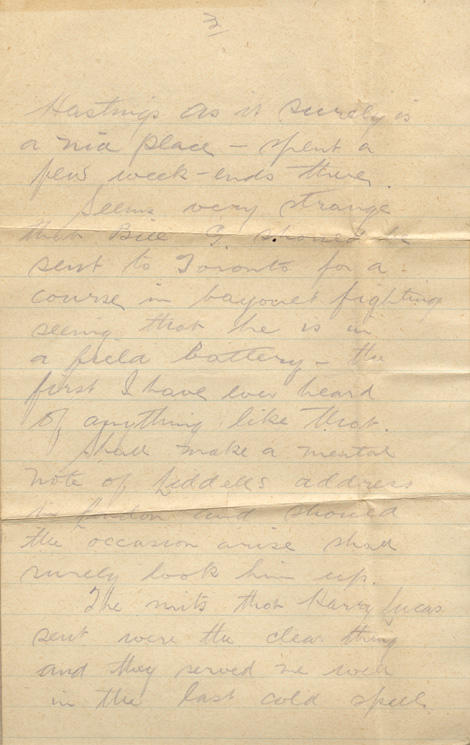 3
Hastings as it surely is
a nice place – spent a
few week-ends there.
Seems very strange
that Bill G. should be
sent to Toronto for a
course in bayonet fighting
seeing that he is in
a field battery – the
first I have ever heard
of anything like that.
Shall make a mental
note of Liddell's address
in London and should
the occasion arise shall
surely look him up.
The mits that Harry Lucas
sent were the clear thing
and they served me well
in the last cold spell